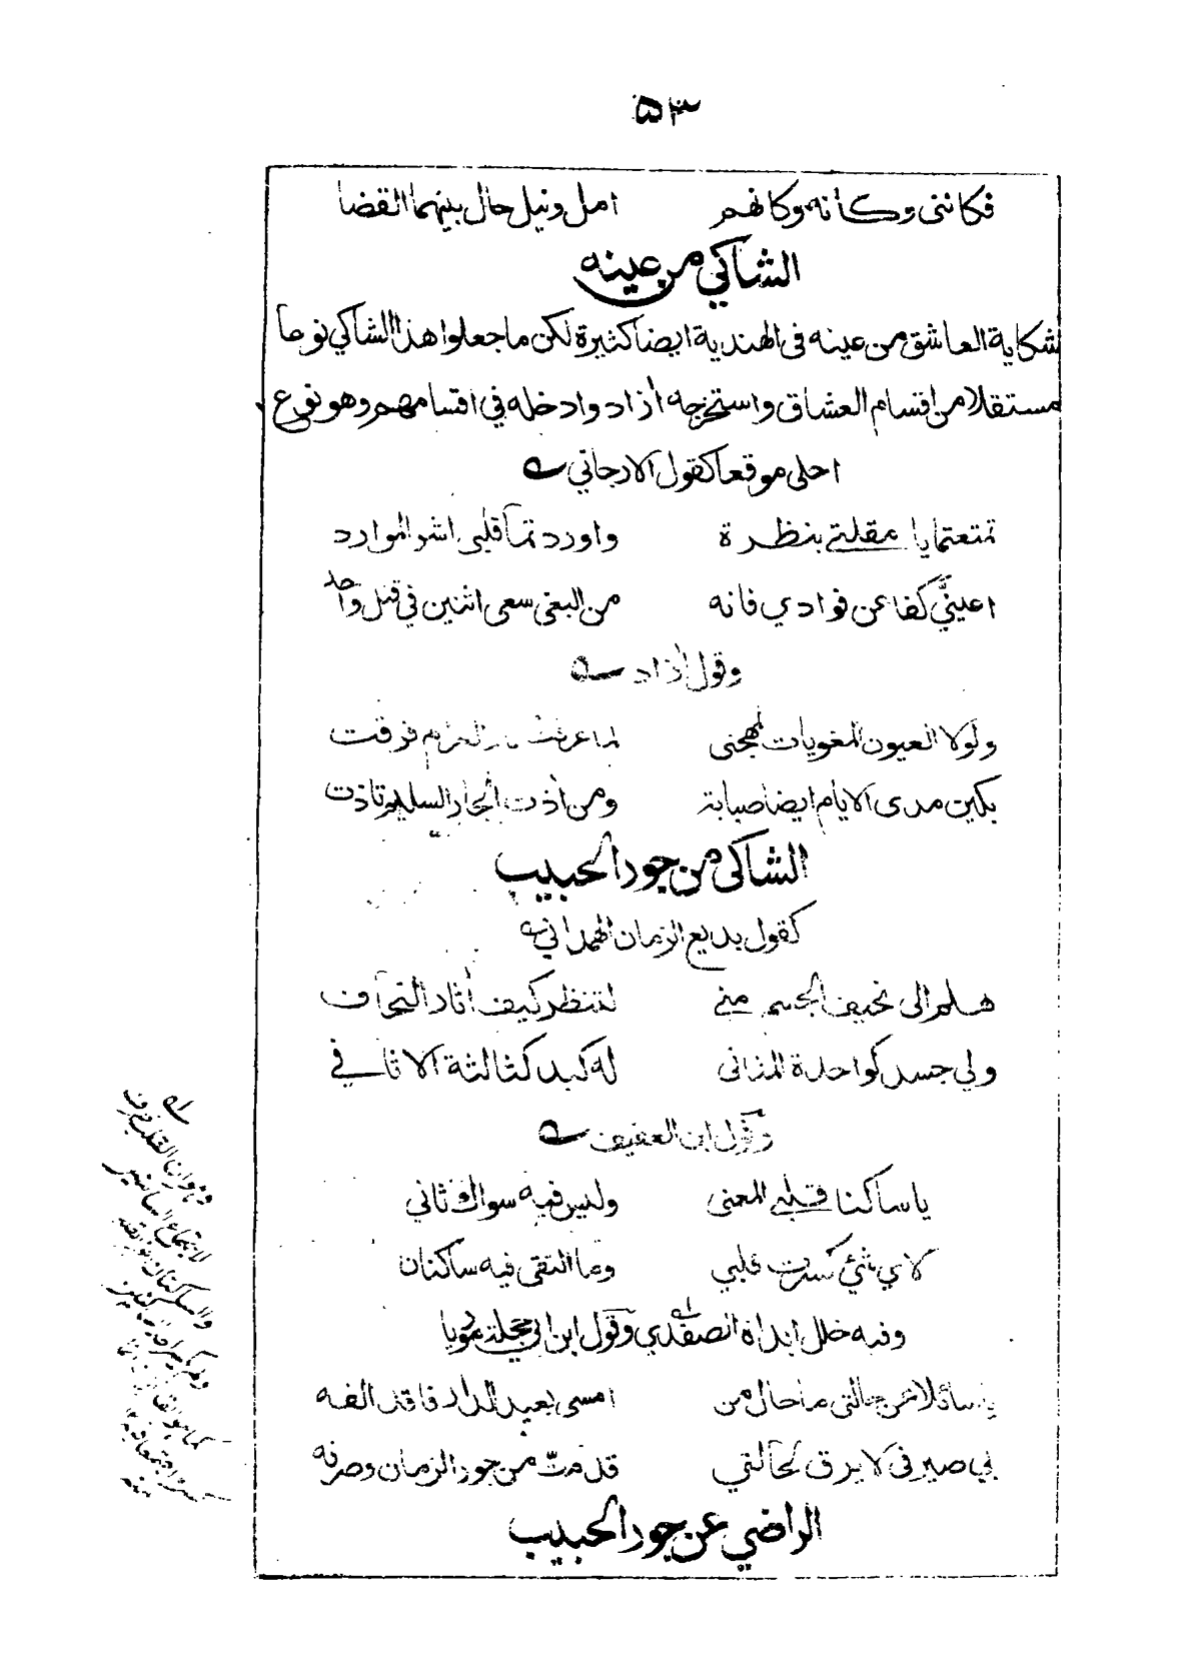 ۵۳
فكاننی وكانه وكانهم امل ونيل حال بينهما القضا
الشاكي من عينه
شكاية العاشق من عينه فی الهندية ايضا كثيرة لكن ما جعلوا هذا الشاكي نوعا
مستقلا من اقسام العشاق واستخرجه أزاد وادخله في اقسامهم وهو نوع
احلی موقعا كقول الارجاني
تمتعتما يا مقلتي بنظرة واوردتما قلبی اشر الموارد
اعينيّ كفا عن فوادي فانه من البغی سعی اثنين في قتل واحد
وقول أزاد
ولولا العيون المغويات لمهجتی لما عرفت الغرام فرقت
بكين مدی الايام ايضا صبابة ومن أذت الجار السليم تاذت
الشاكی من جور الحبيب
كقول بديع الزمان الهمداني
هلم الی نحيف الجسم مني لتنظر كيف أثار النحاف
ولي جسد كواحدة المثانی له كبد كثالثة الاثافي
وقول ابن العفيف
يا ساكنا قلبي المعنی وليس فيه سواك ثاني
لاي شئ كسرت قلبي وما التقی فيه ساكنان
وفيه خلل ابداه الصفدي وقول ابن ابي حجلة موريا
يا سائلا عن حالتی ما حال من امسی بعيد الدار فاقد الفه
بي صيرفی لا يرق لحالتي قد متّ من جور الزمان وصرفه
الراضي عن جور الحبيب